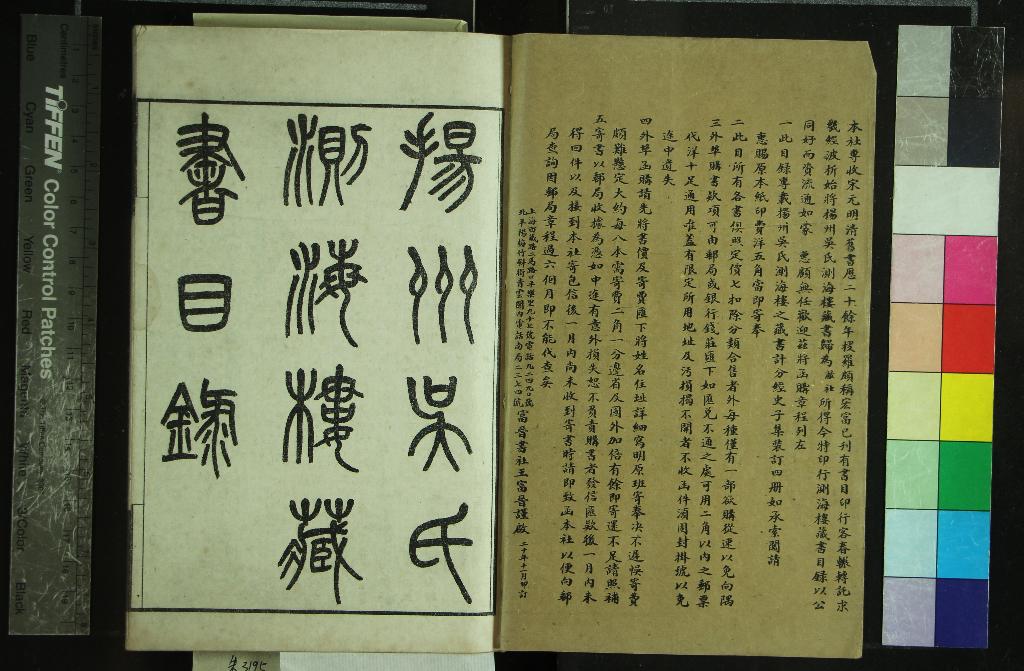 本社專收宋元明清舊書歷二十餘年搜羅頗稱宏富已刊有書目印行容春輾轉託求
幾經波折始將揚州吳氏測海樓藏書歸為敝社所得今特印行測海樓藏書目錄以公
同好而資流通如蒙 惠顧無任歡迎茲將函購章程列左
一此目錄專載揚州吳氏測海樓之藏書計分經史子集裝訂四册如承索閱請
惠賜原本紙印費洋五角當即寄奉
二此目所有各書俱照定價七扣除分類合售者外每種僅有一部欲購從速以免向隅
三外埠購書款項可由郵局或銀行錢莊匯下如匯兌不通之處可用二角以內之郵票
代洋十足通用唯蓋有限定所用地址及污損揭不開者不收函件須固封掛號以免
途中遺失
四外埠函購請先將書價及寄費匯下將姓名住址詳細寫明原班寄奉决不遲悞寄費
頗難懸定大約每八本需寄費二角一分邊省及國外加倍有餘即寄還不足請照補
五寄書以郵局收據為憑如中途有意外損失恕不負責購書者發信匯款後一月內未
得回件以及接到本社寄包信後一月內尚未收到寄書時請即致函本社以便向郵
局查詢因郵局章程過六個月即不能代查矣
富晉書社王富晉謹啟 二十年十一月印訂
揚州吳氏
測海樓藏
書目錄
TIFFEN Color Control Patches
Centimetres
Blue
Cyan
Green
Yellow
Red
Magenta
White
3/Color
Black
朱3195